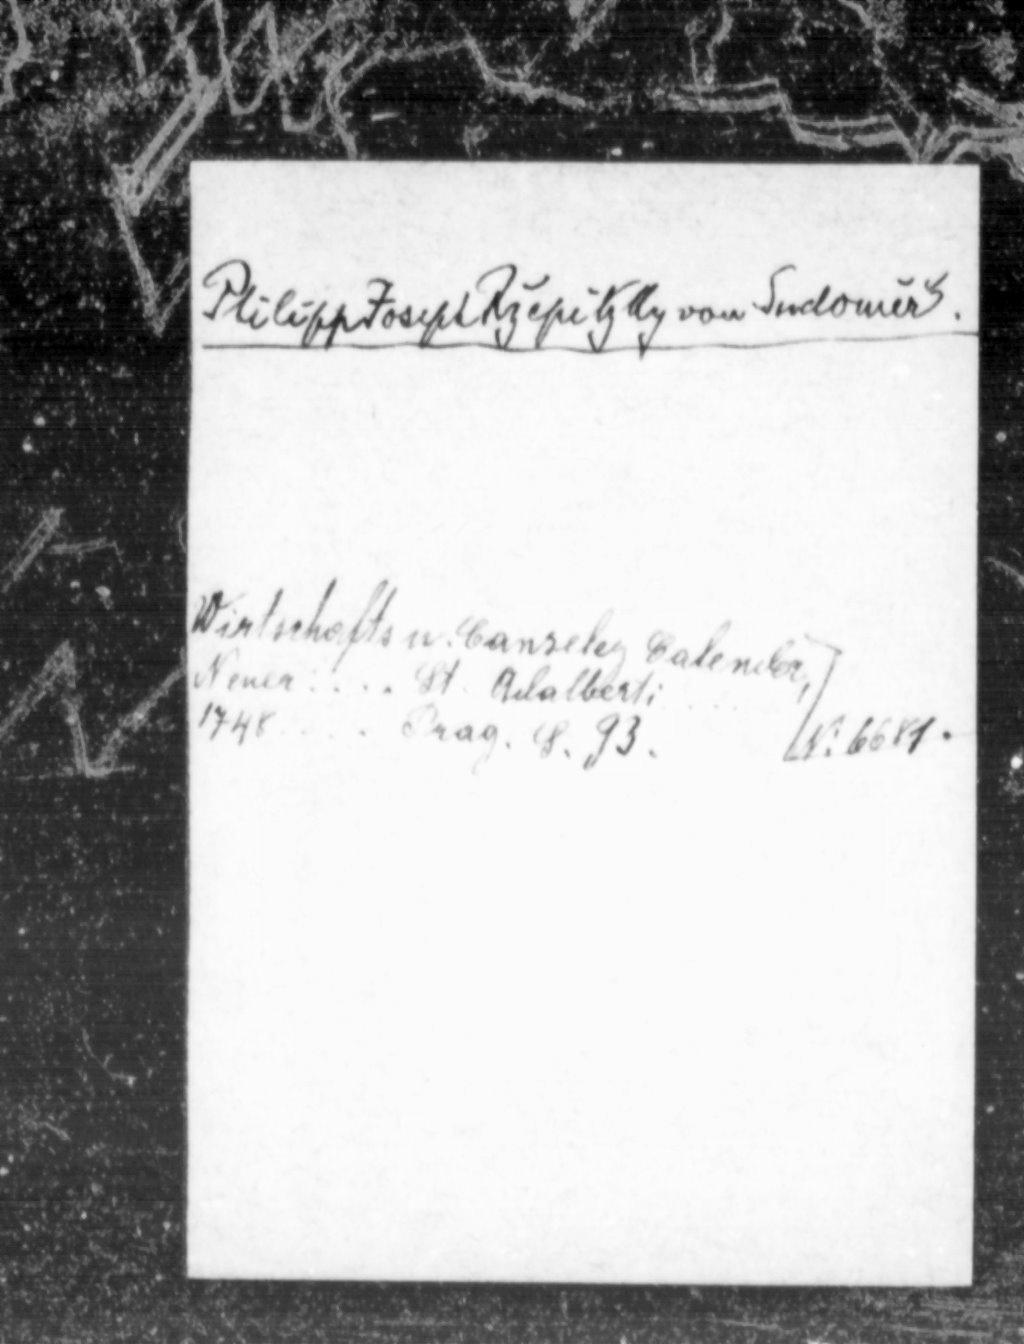 Philipp Joseph Ržepitzky von Sudoměř.
Wirtschafts u. Canzeley Calender,
Neuer .... St. Adalberti ....
1748 ..... Prag. S. 93. N: 6681.